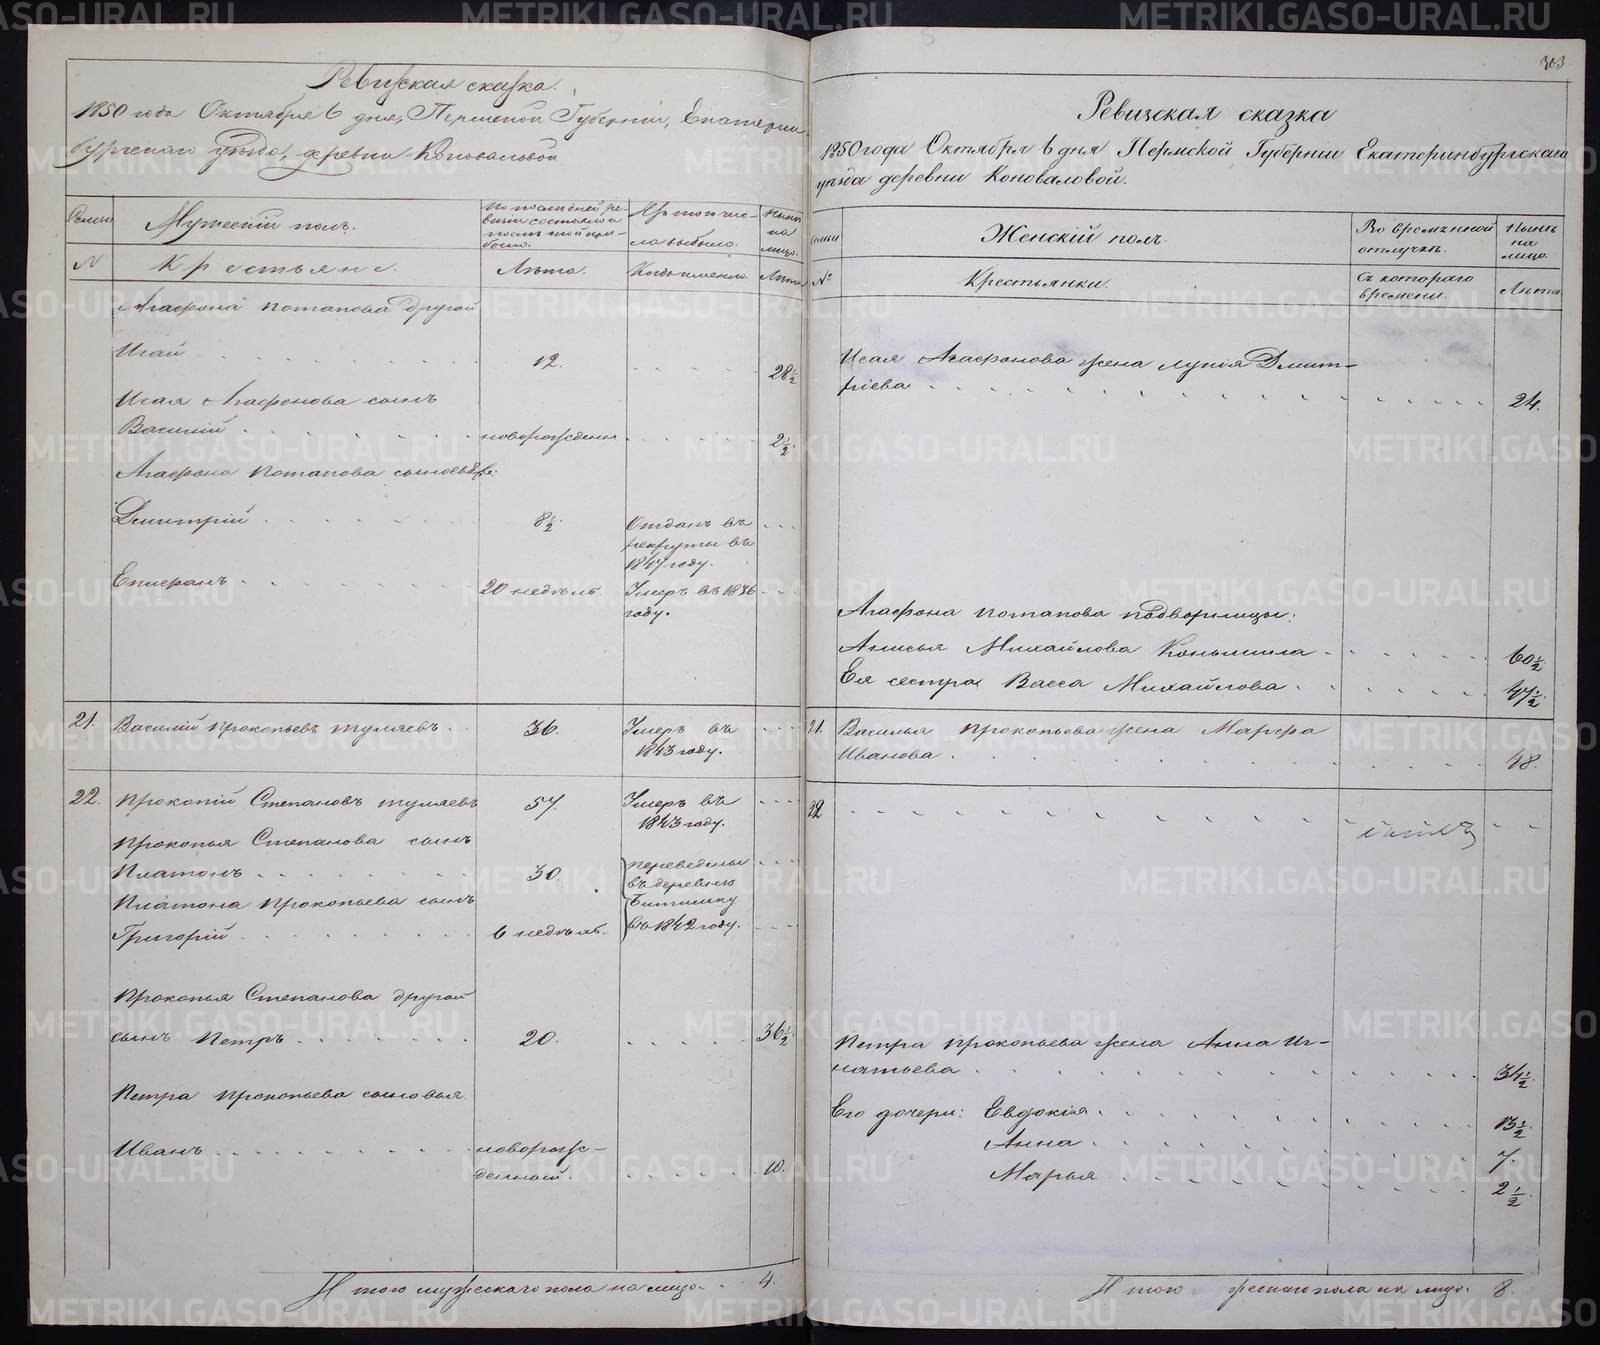 Ревизская сказка.
1850 года Октября 6 дня, Пермской Губерніи, Екатерин
бургскаго уѣзда, деревни Коноваловой
Семьи
Мужескій полъ.
По послѣдней ре-
визіи состояло и
послѣ той при-
было.
Изъ того чис-
ла выбыло.
Нынѣ
на
лицо.
№
Крестьяне.
Лѣта.
Когда именно.
Лѣта
Агафона Потапова другой
Исай
12.
28½
Исая Агафонова сынъ
Василій
новорожденн
2½.
Агафона Потапова сыновья:
Дмитрій
8½.
Отданъ въ
рекруты въ
1847 году.
Епифанъ
20 недѣль.
Умеръ въ 1836
году.
21.
Василій Прокопьевъ Туляевъ
36.
Умеръ въ
1843 году.
22.
Прокопій Степановъ Туляевъ
57.
Умеръ въ
1843 году.
Прокопья Степанова сынъ
Платонъ
30.
Переведены
въ деревню
Платона Прокопьева сынъ
Григорій
6 недѣль.
въ 1842 году.
Прокопья Степанова другой
сынъ Петръ
20.
36½.
Петра Прокопьева сыновья
Иванъ
новорож-
денной.
10.
Итого мужескаго пола на лицо
4.
303
Ревизская сказка
1850 года Октября 6 дня Пермской Губерніи Екатеринбургскаго
уѣзда деревни Коноваловой.
Семьи
Женскій полъ.
Во временной
отлучкѣ.
Нынѣ
на
лицо
№
Крестьянки.
Съ котораго
времени.
Лѣта
Исая Агафонова жена Лукія Дмит-
ріева
24.
Агафона Потапова подворницы:
Анисья Михайлова Коньшина
60½
Ея сестра Васса Михайлова
47½.
21.
Василья Прокопьева жена Марфа
Иванова
48.
22
Петра Прокопьева жена Анна Иг-
натьева
34½.
Его дочери: Евдокія
13½.
Анна
7.
Марья
2½.
Итого женскаго пола на лицо.
8.
METRIKI.GASO-URAL.RU